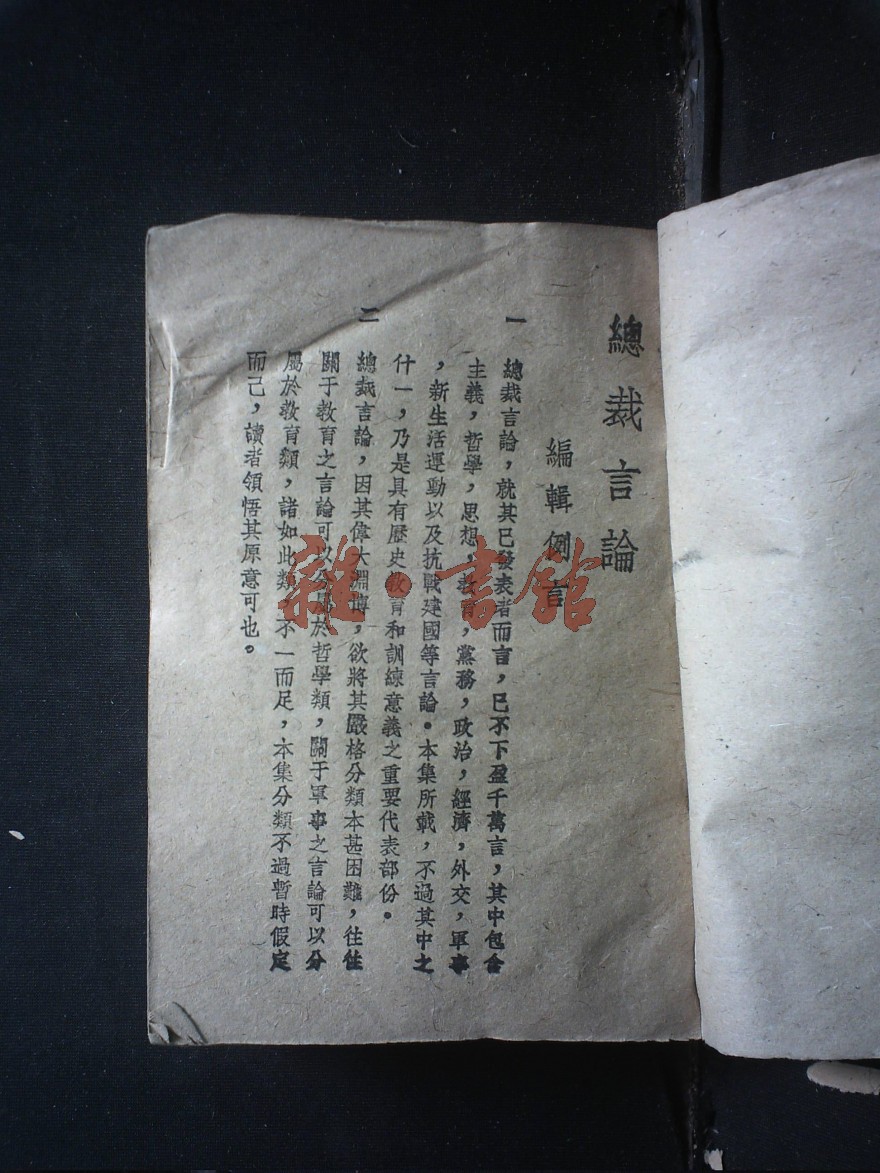 總裁言論
編輯例言
一 總裁言論，就其已發表者而言，已不下盈千萬言，其中包含
主義，哲學，思想，教育，黨務，政治，經濟，外交，軍事
，新生活運動以及抗戰建國等言論。本集所載，不過其中之
什一，乃是具有歷史教育和訓練意義之重要代表部份。
二 總裁言論，因其偉大淵博，欲將其嚴格分類本甚困難，往往
關于教育之言論可以分屬於哲學類，關于軍事之言論可以分
屬於教育類，諸如此類，不一而足，本集分類不過暫時假定
而己，讀者領悟其原意可也。
雜·書館